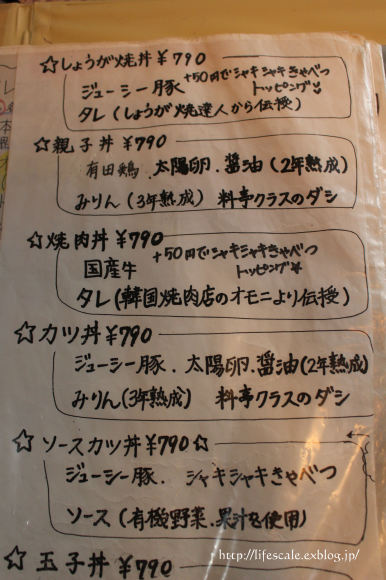 ☆しょうが焼丼 ¥790
+50円でシャキシャキきゃべつ
トッピング♡
ジューシー豚
タレ(しょうが焼達人から伝授)
☆親子丼 ¥790
有田鶏、太陽卵、醤油(2年熟成)
みりん(3年熟成) 料亭クラスのダシ
☆焼肉丼 ¥790
+50円でシャキシャキきゃべつ
トッピング♥
国産牛
タレ(韓国焼肉店のオモニより伝授)
☆カツ丼 ¥790
ジューシー豚、太陽卵、醤油(2年熟成)
みりん(3年熟成) 料亭クラスのダシ
☆ソースカツ丼 ¥790☆
ジューシー豚、シャキシャキきゃべつ
ソース(有機野菜、果汁を使用)
☆玉子丼 ¥790
http://lifescale.exblog.jp/